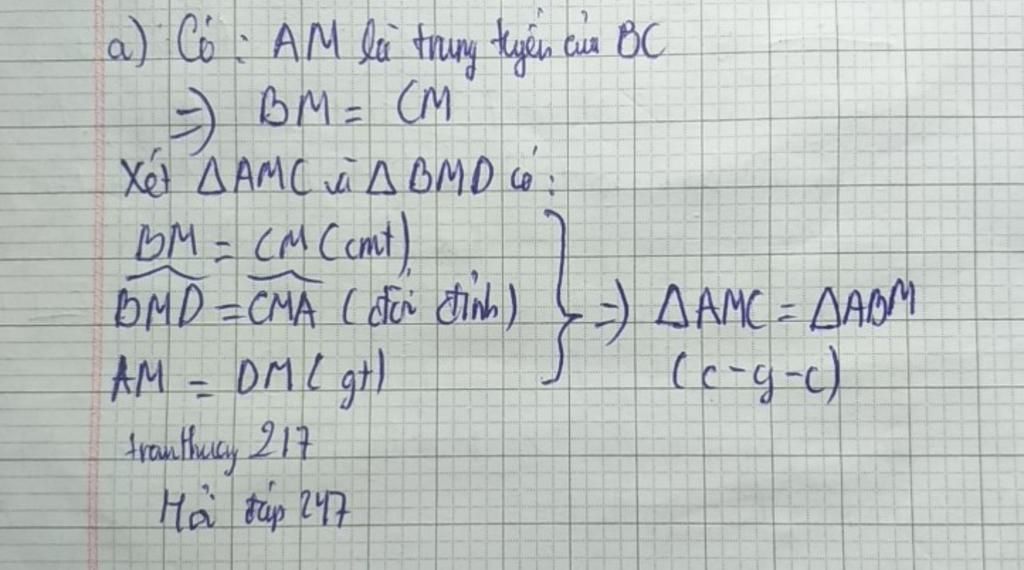 a) Có : AM là trung tuyến của BC
=> BM = CM
Xét ΔAMC và ΔBMD có :
BM = CM (cmt)
BMD = CMA (đối đỉnh)
AM = DM (gt)
=> ΔAMC = ΔABM
(c-g-c)
tranthuy 217
Hỏi đáp 247